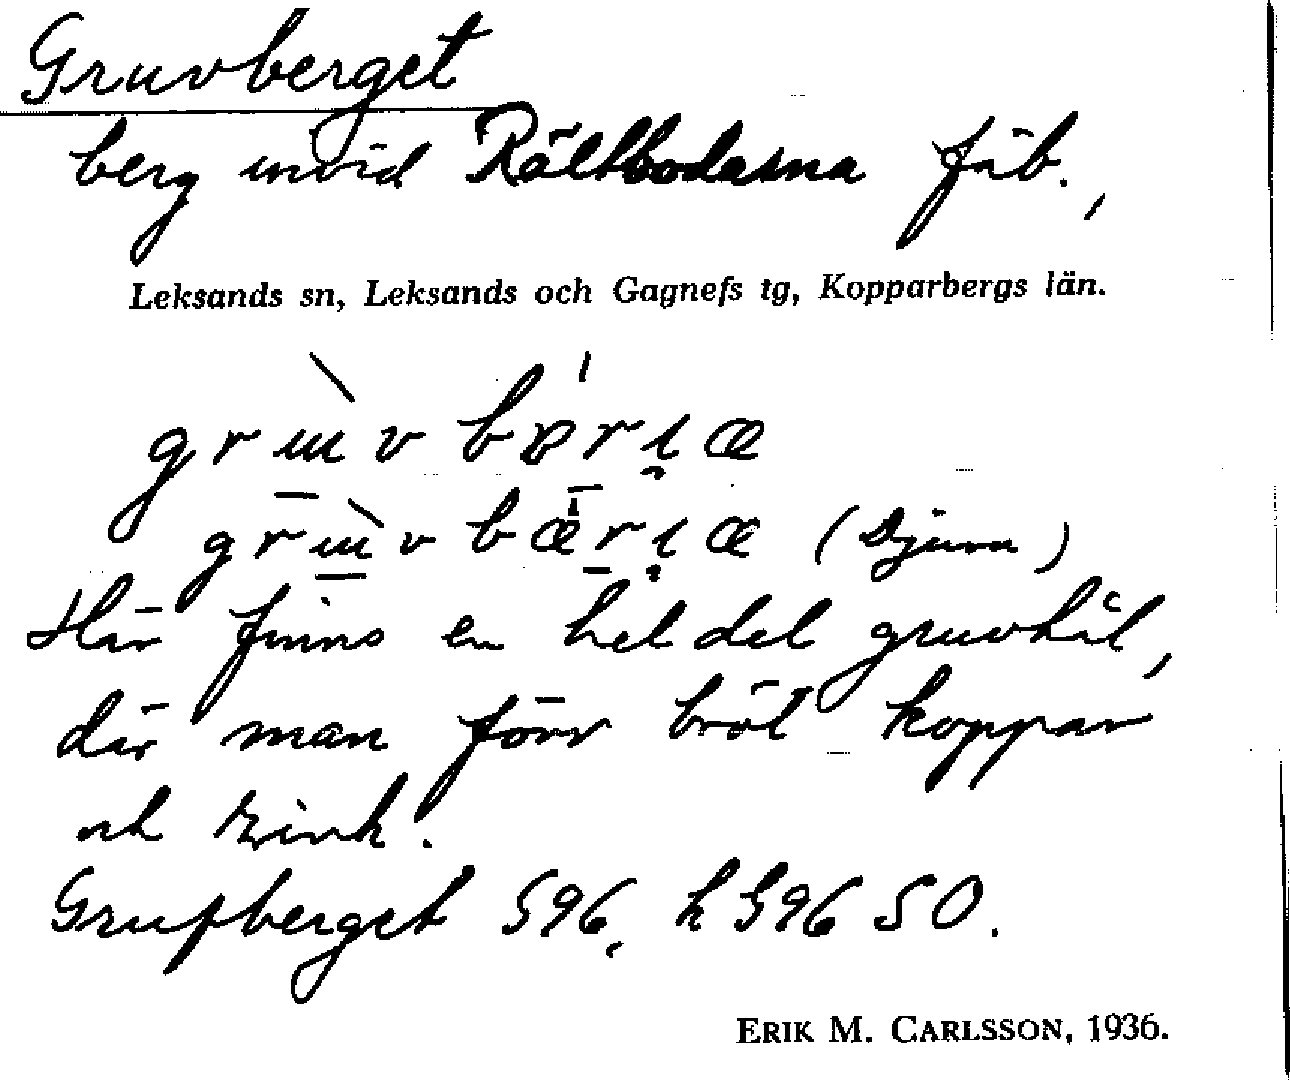 Gruvberget
berg invid Rältbodarna fäb.,
Leksands sn, Leksands och Gagnefs tg, Kopparbergs län.
(Djura)
Här finns en hel del gruvhål,
där man förr bröt koppar
och zink.
Grufberget S96, h S96 SO.
ERIK M. CARLSSON, 1936.